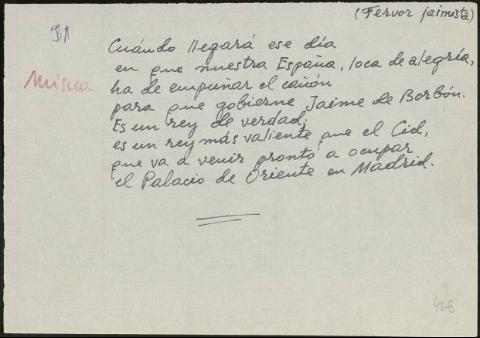 (Fervor jaimista)
Cuándo llegará ese día
en que nuestra España, loca de alegría,
Música
ha de empuñar el cañón
para que gobierne Jaime de Borbón.
Es un rey de verdad;
es un rey más valiente que el Cid,
que va a venir pronto a ocupar
el Palacio de Oriente en Madrid.